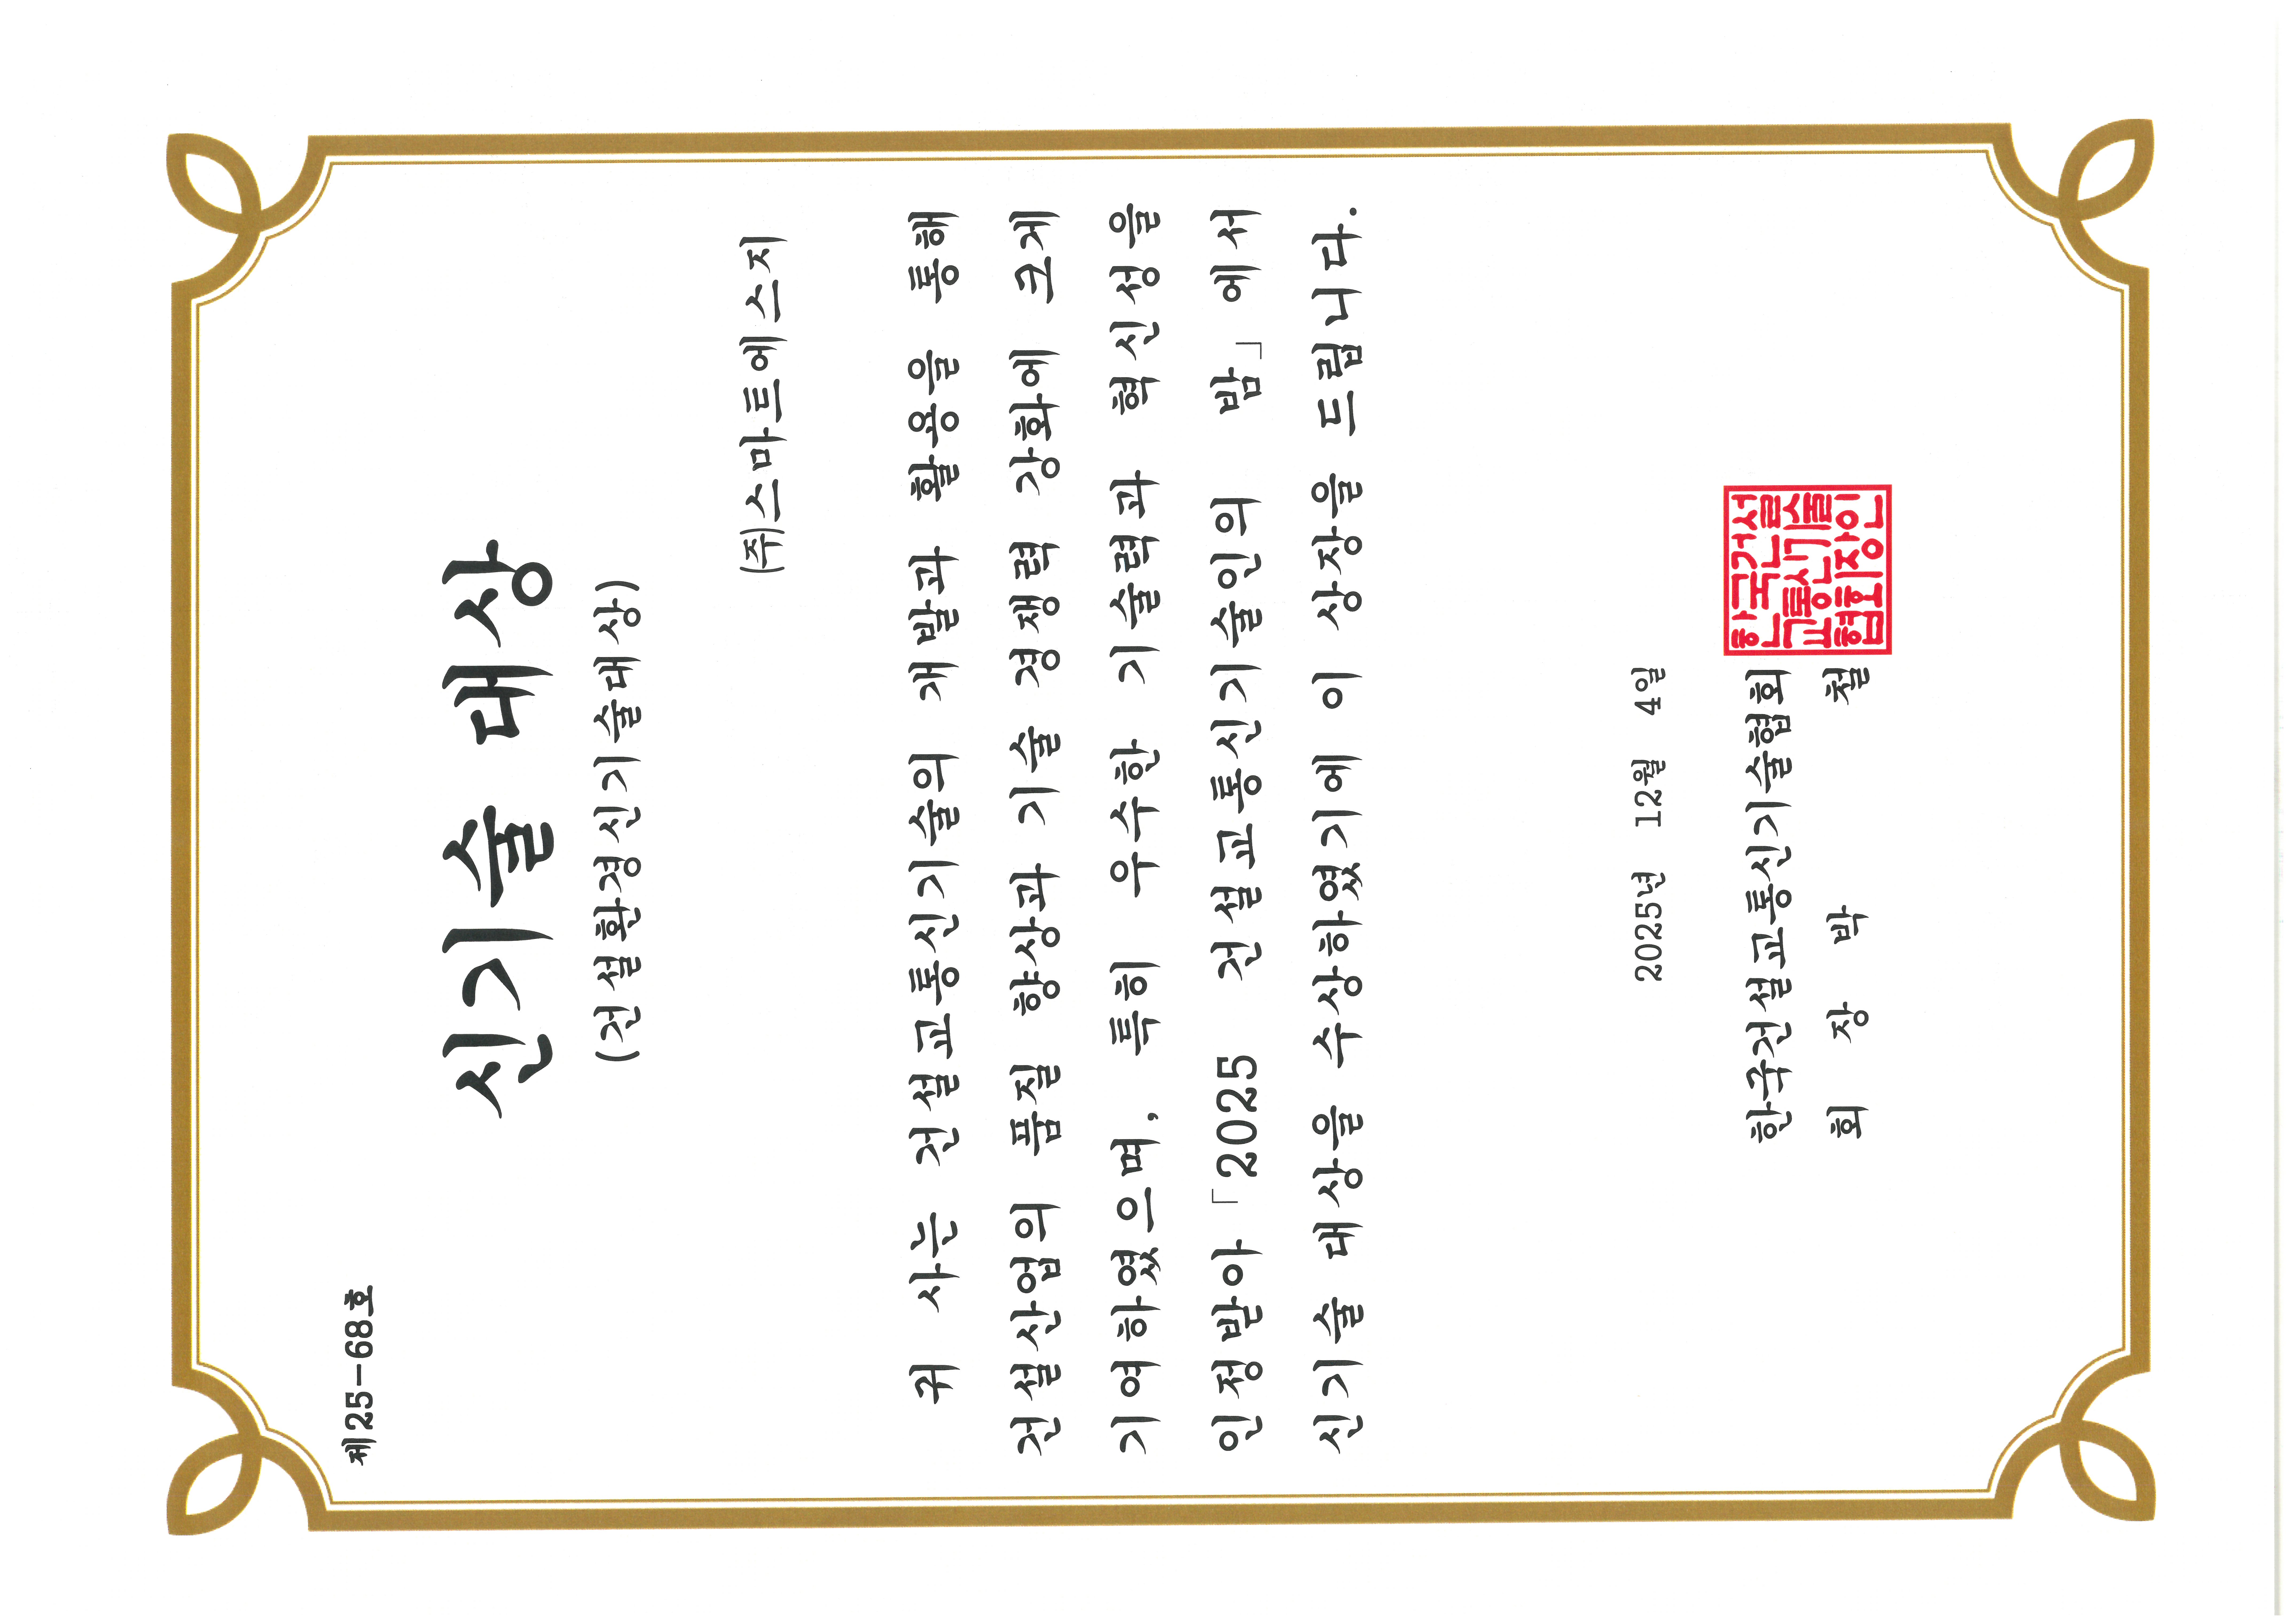 제25-68호
신기술 대상
(건설환경신기술대상)
(주)스마트에스지
귀 사는 건설교통신기술의 개발과 활용을 통해
건설산업의 품질 향상과 기술 경쟁력 강화에 크게
기여하였으며, 특히 우수한 기술력과 혁신성을
인정받아 「2025 건설교통신기술인의 밤」에서
신기술 대상을 수상하였기에 이 상장을 드립니다.
2025년 12월 4일
한국건설교통신기술협회
회 장 박 철
한국건설
교통신기술
협회장인